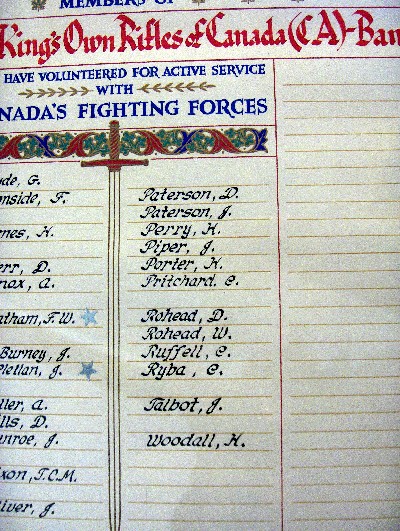 MEMBERS OF
King's Own Rifles of Canada (C.A.)-Ban
HAVE VOLUNTEERED FOR ACTIVE SERVICE
WITH
NADA'S FIGHTING FORCES
de, G.
nside, F.
nes, H.
err, D.
nox, A.
atham, F.W.
Burney, J.
Clellan, J.
ller, A.
lls, D.
nroe, J.
ixon, T.C.M.
liver, J.
Paterson, D.
Paterson, J.
Perry, H.
Piper, J.
Porter, H.
Pritchard. C.
Rohead, D.
Rohead, W.
Ruffell, C.
Ryba, C.
Talbot, J.
Woodall, H.